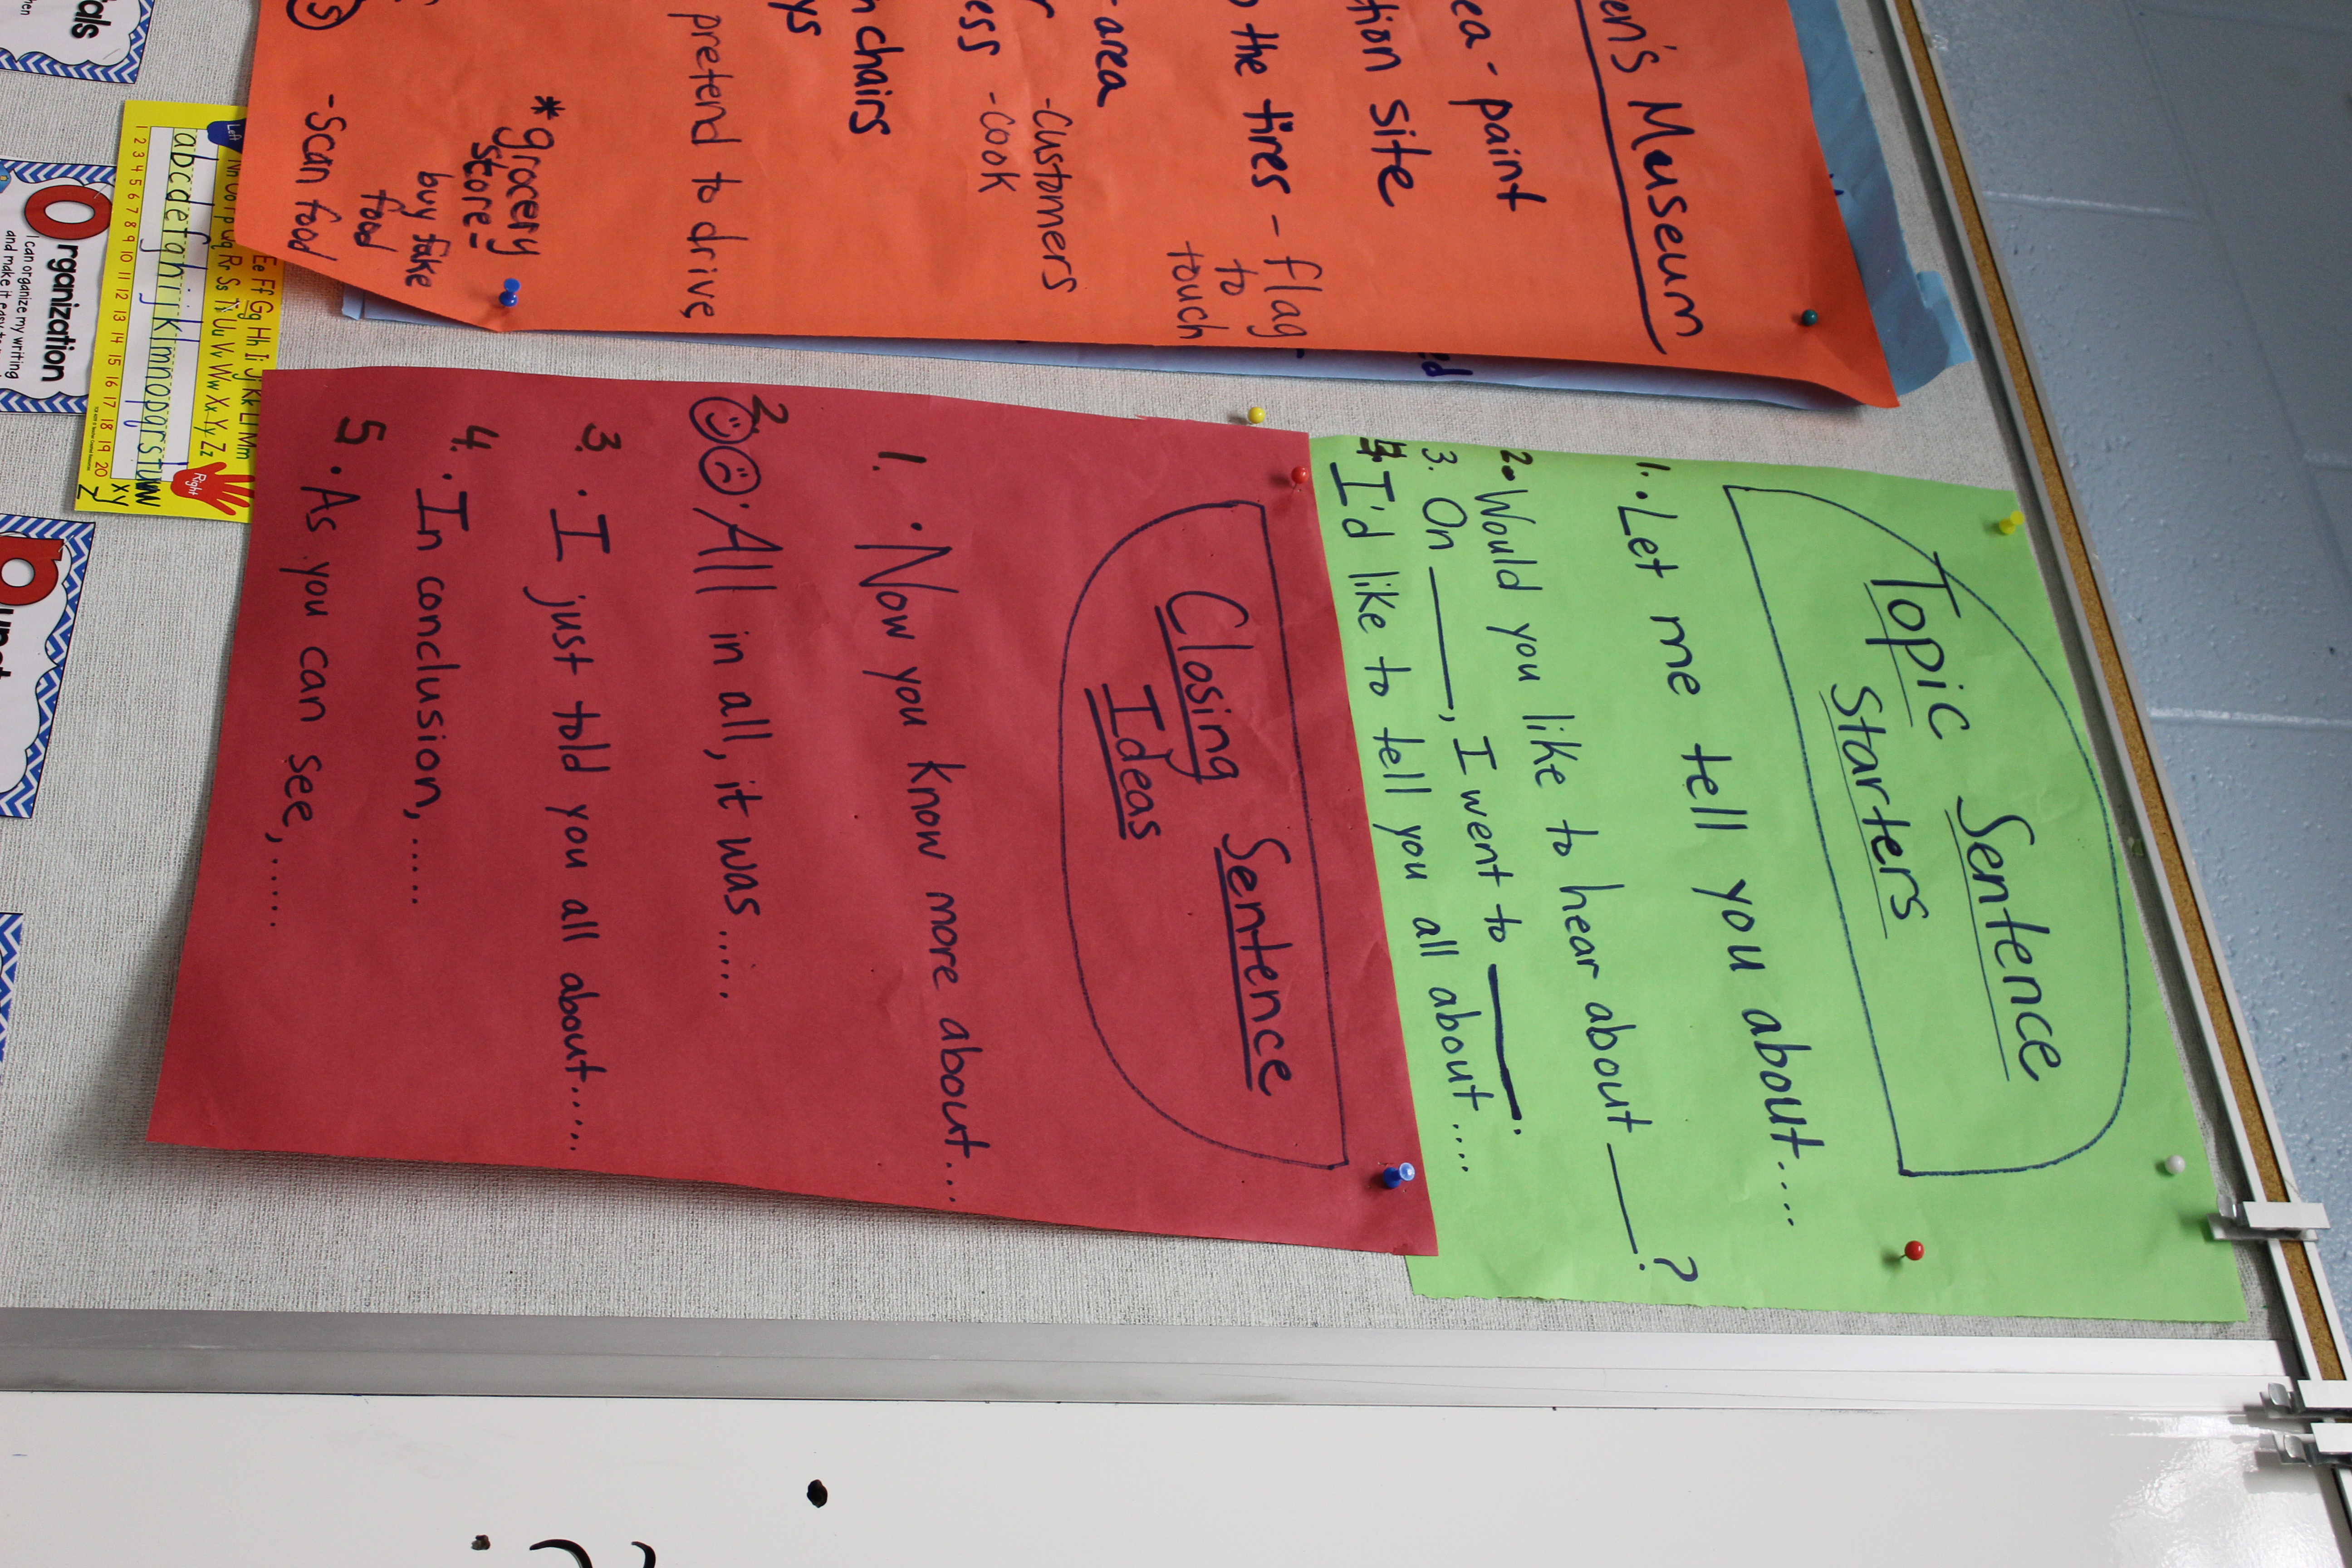 Topic Sentence
Starters
1. . Let me tell you about....
2. Would you like to hear about ____?
3. On ____, I went to ____.
4. I'd like to tell you all about.....
Closing Sentence
Ideas
1. . Now you know more about...
2. . All in all, it was.....
3. . I just told you all about.....
4. . In conclusion,.....
5. . As you can see,......
en's Museum
ea - paint
tion site
the tires - flag
to
touch
-area
-customers
ess -cook
n chairs
ys
pretend to drive
*grocery
store-
buy fake
food
-scan food
Ee Ff Gg Hh Ii Jj Kk Ll Mm
Left Nn Oo Pp Qq Rr Ss Tt Uu Vv Ww Xx Yy Zz Right
abcdefghijklmnopqrstuvw
xy
z
1 2 3 4 5 6 7 8 9 10 11 12 13 14 15 16 17 18 19 20
als
Organization
I can organize my writing
and make it easy to